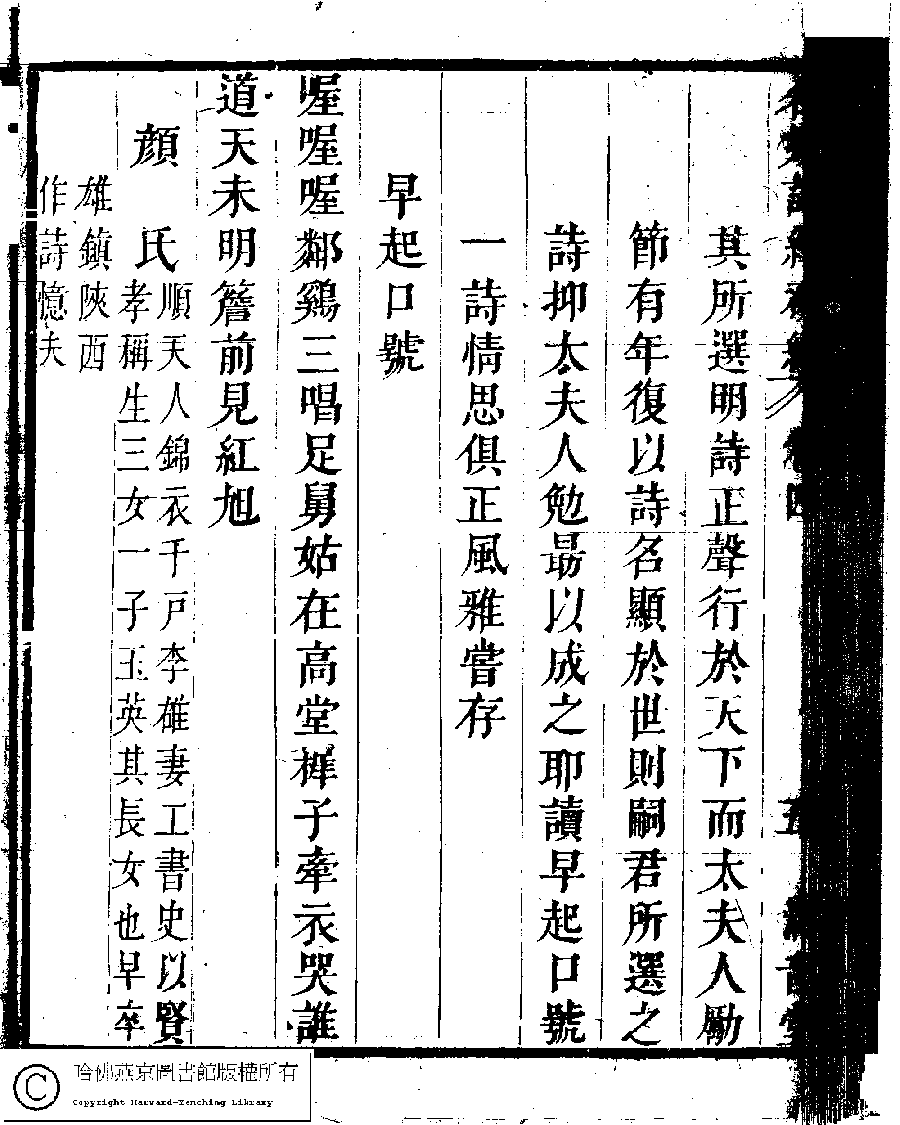 其所選明詩正聲行於天下而太夫人勵
節有年復以詩名顯於世則嗣君所選之
詩抑太夫人勉朂以成之耶讀早起口號
一詩情思俱正風雅嘗存
早起口號
喔喔喔鄰鷄三唱足舅姑在高堂稺子牽衣哭誰
道天未明簷前見紅旭
顏氏
順天人錦衣千戸李雄妻工書史以賢
孝稱生三女一子玉英其長女也早卒
雄鎭陜西
作詩憶夫
哈佛燕京圖書館版權所有
Copyright Harvard-Yenching Library